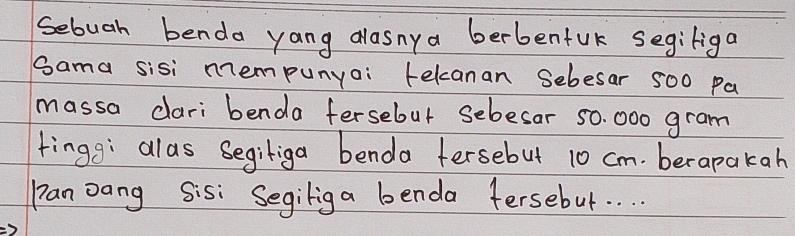 Sebuah benda yang alasnya berbentuk segitiga
sama sisi mempunyai tekanan sebesar 500 pa
massa dari benda tersebut sebesar 50.000 gram
tinggi alas segitiga benda tersebut 10 cm. berapakah
panjang sisi segitiga benda tersebut....
=>